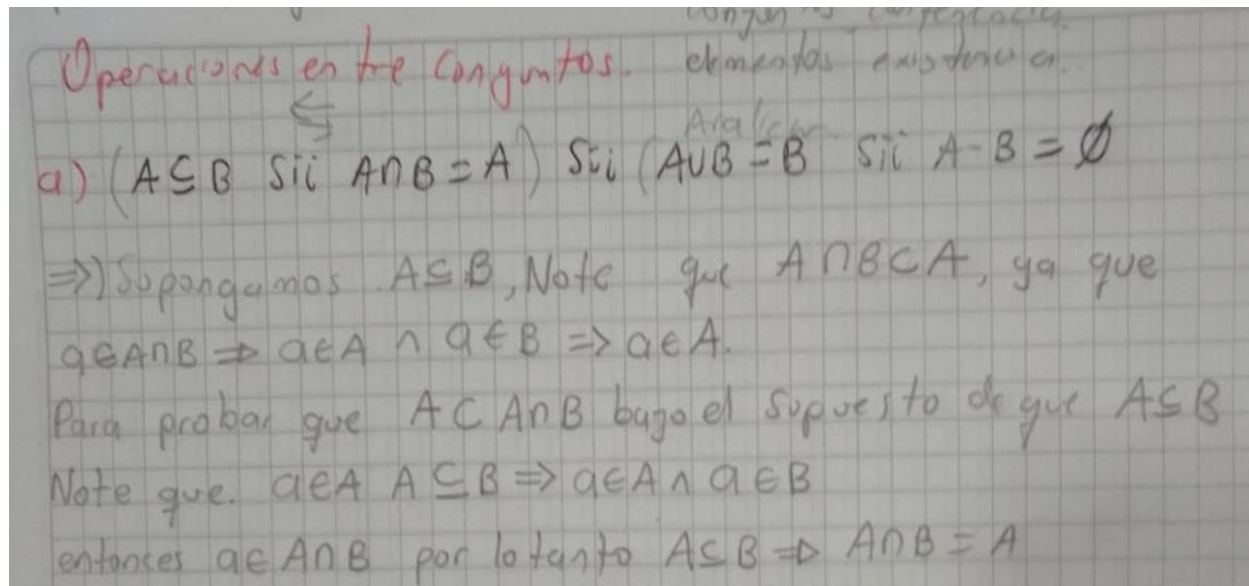 Operaciones entre Conguntos. elementos existencia.
Aralizar
a) (A ⊆ B Sii A∩B = A) Sii (A∪B = B Sii A-B = ∅
⇒) Supongamos A⊆B, Note que A∩B⊂A, ya que
a∈A∩B ⇒ a∈A ∧ a∈B ⇒ a∈A.
Para probar que A⊂A∩B bajo el supuesto de que A⊆B
Note que. a∈A A⊆B ⇒ a∈A ∧ a∈B
entonces a∈A∩B por lo tanto A⊆B ⇒ A∩B = A